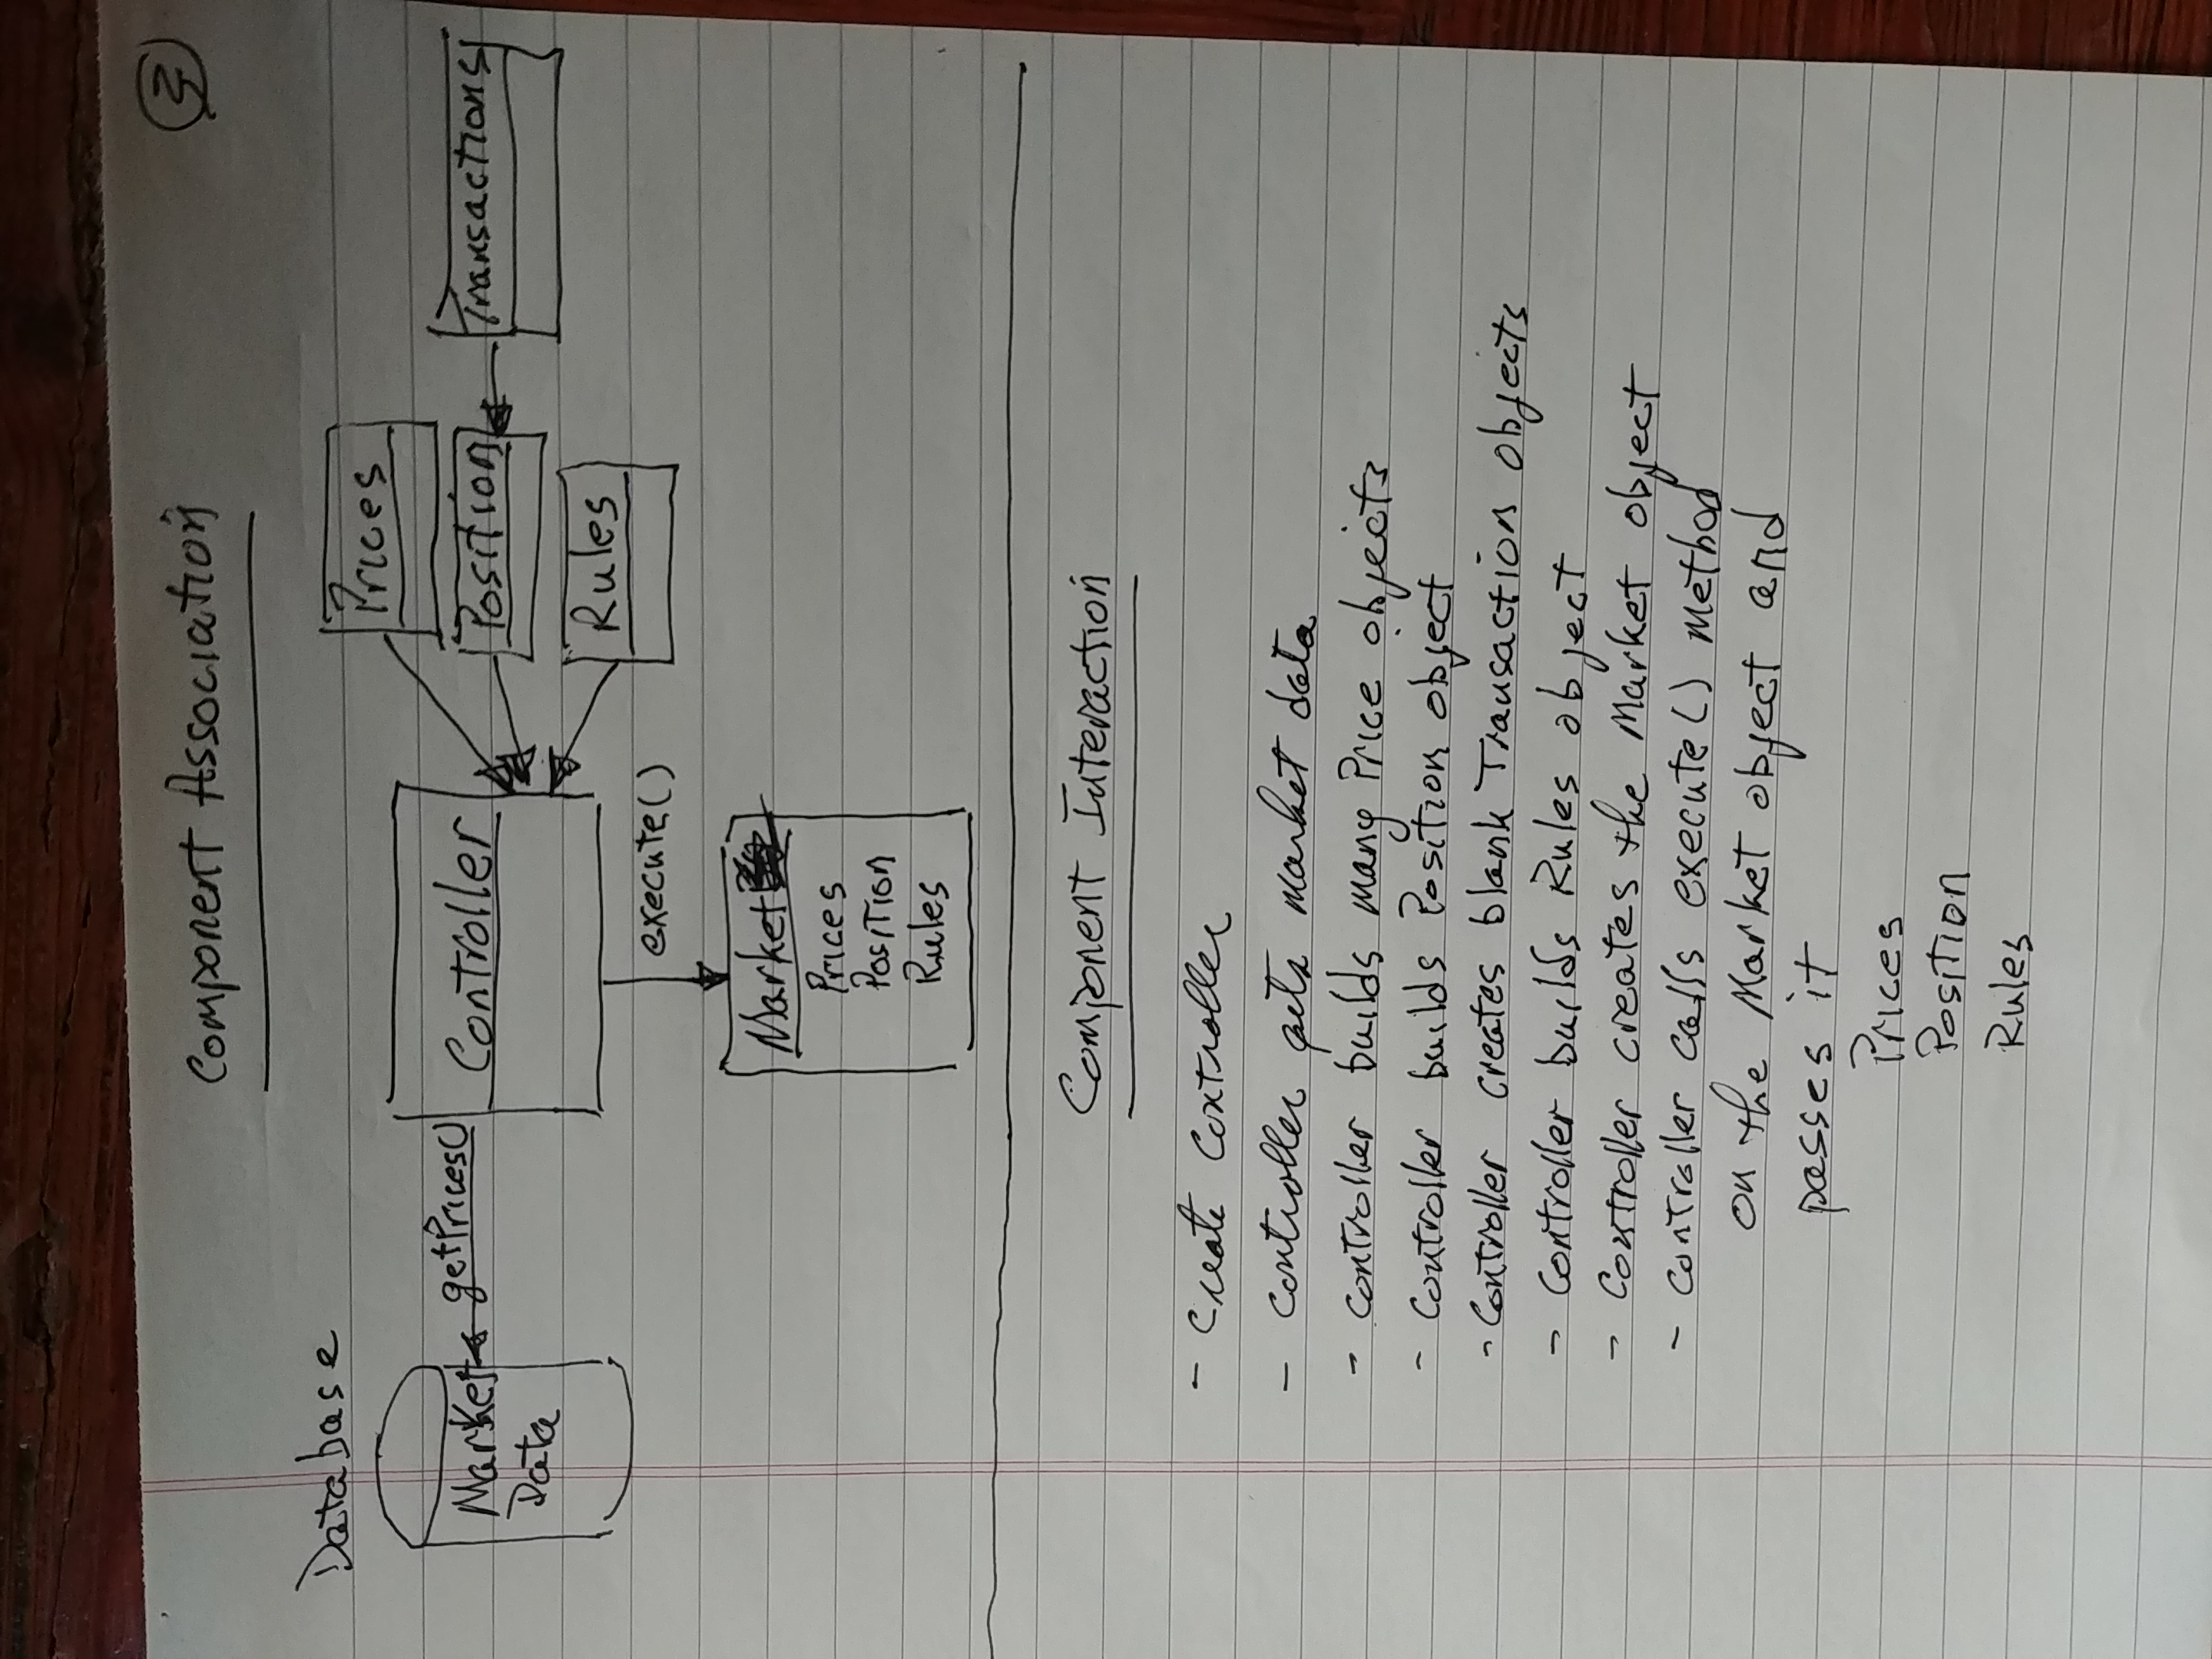 3
Component Association
Database
Prices
Market
Data
getPrices()
Controller
Position
Transactions
Rules
execute()
Market
Prices
Position
Rules
Component Interaction
- Create Controller
- Controller gets market data
- Controller builds many Price objects
- Controller builds Position object
- Controller creates blank Transaction objects
- Controller builds Rules object
- Controller creates the Market object
- Controller calls execute() method
on the Market object and
passes it
Prices
Position
Rules